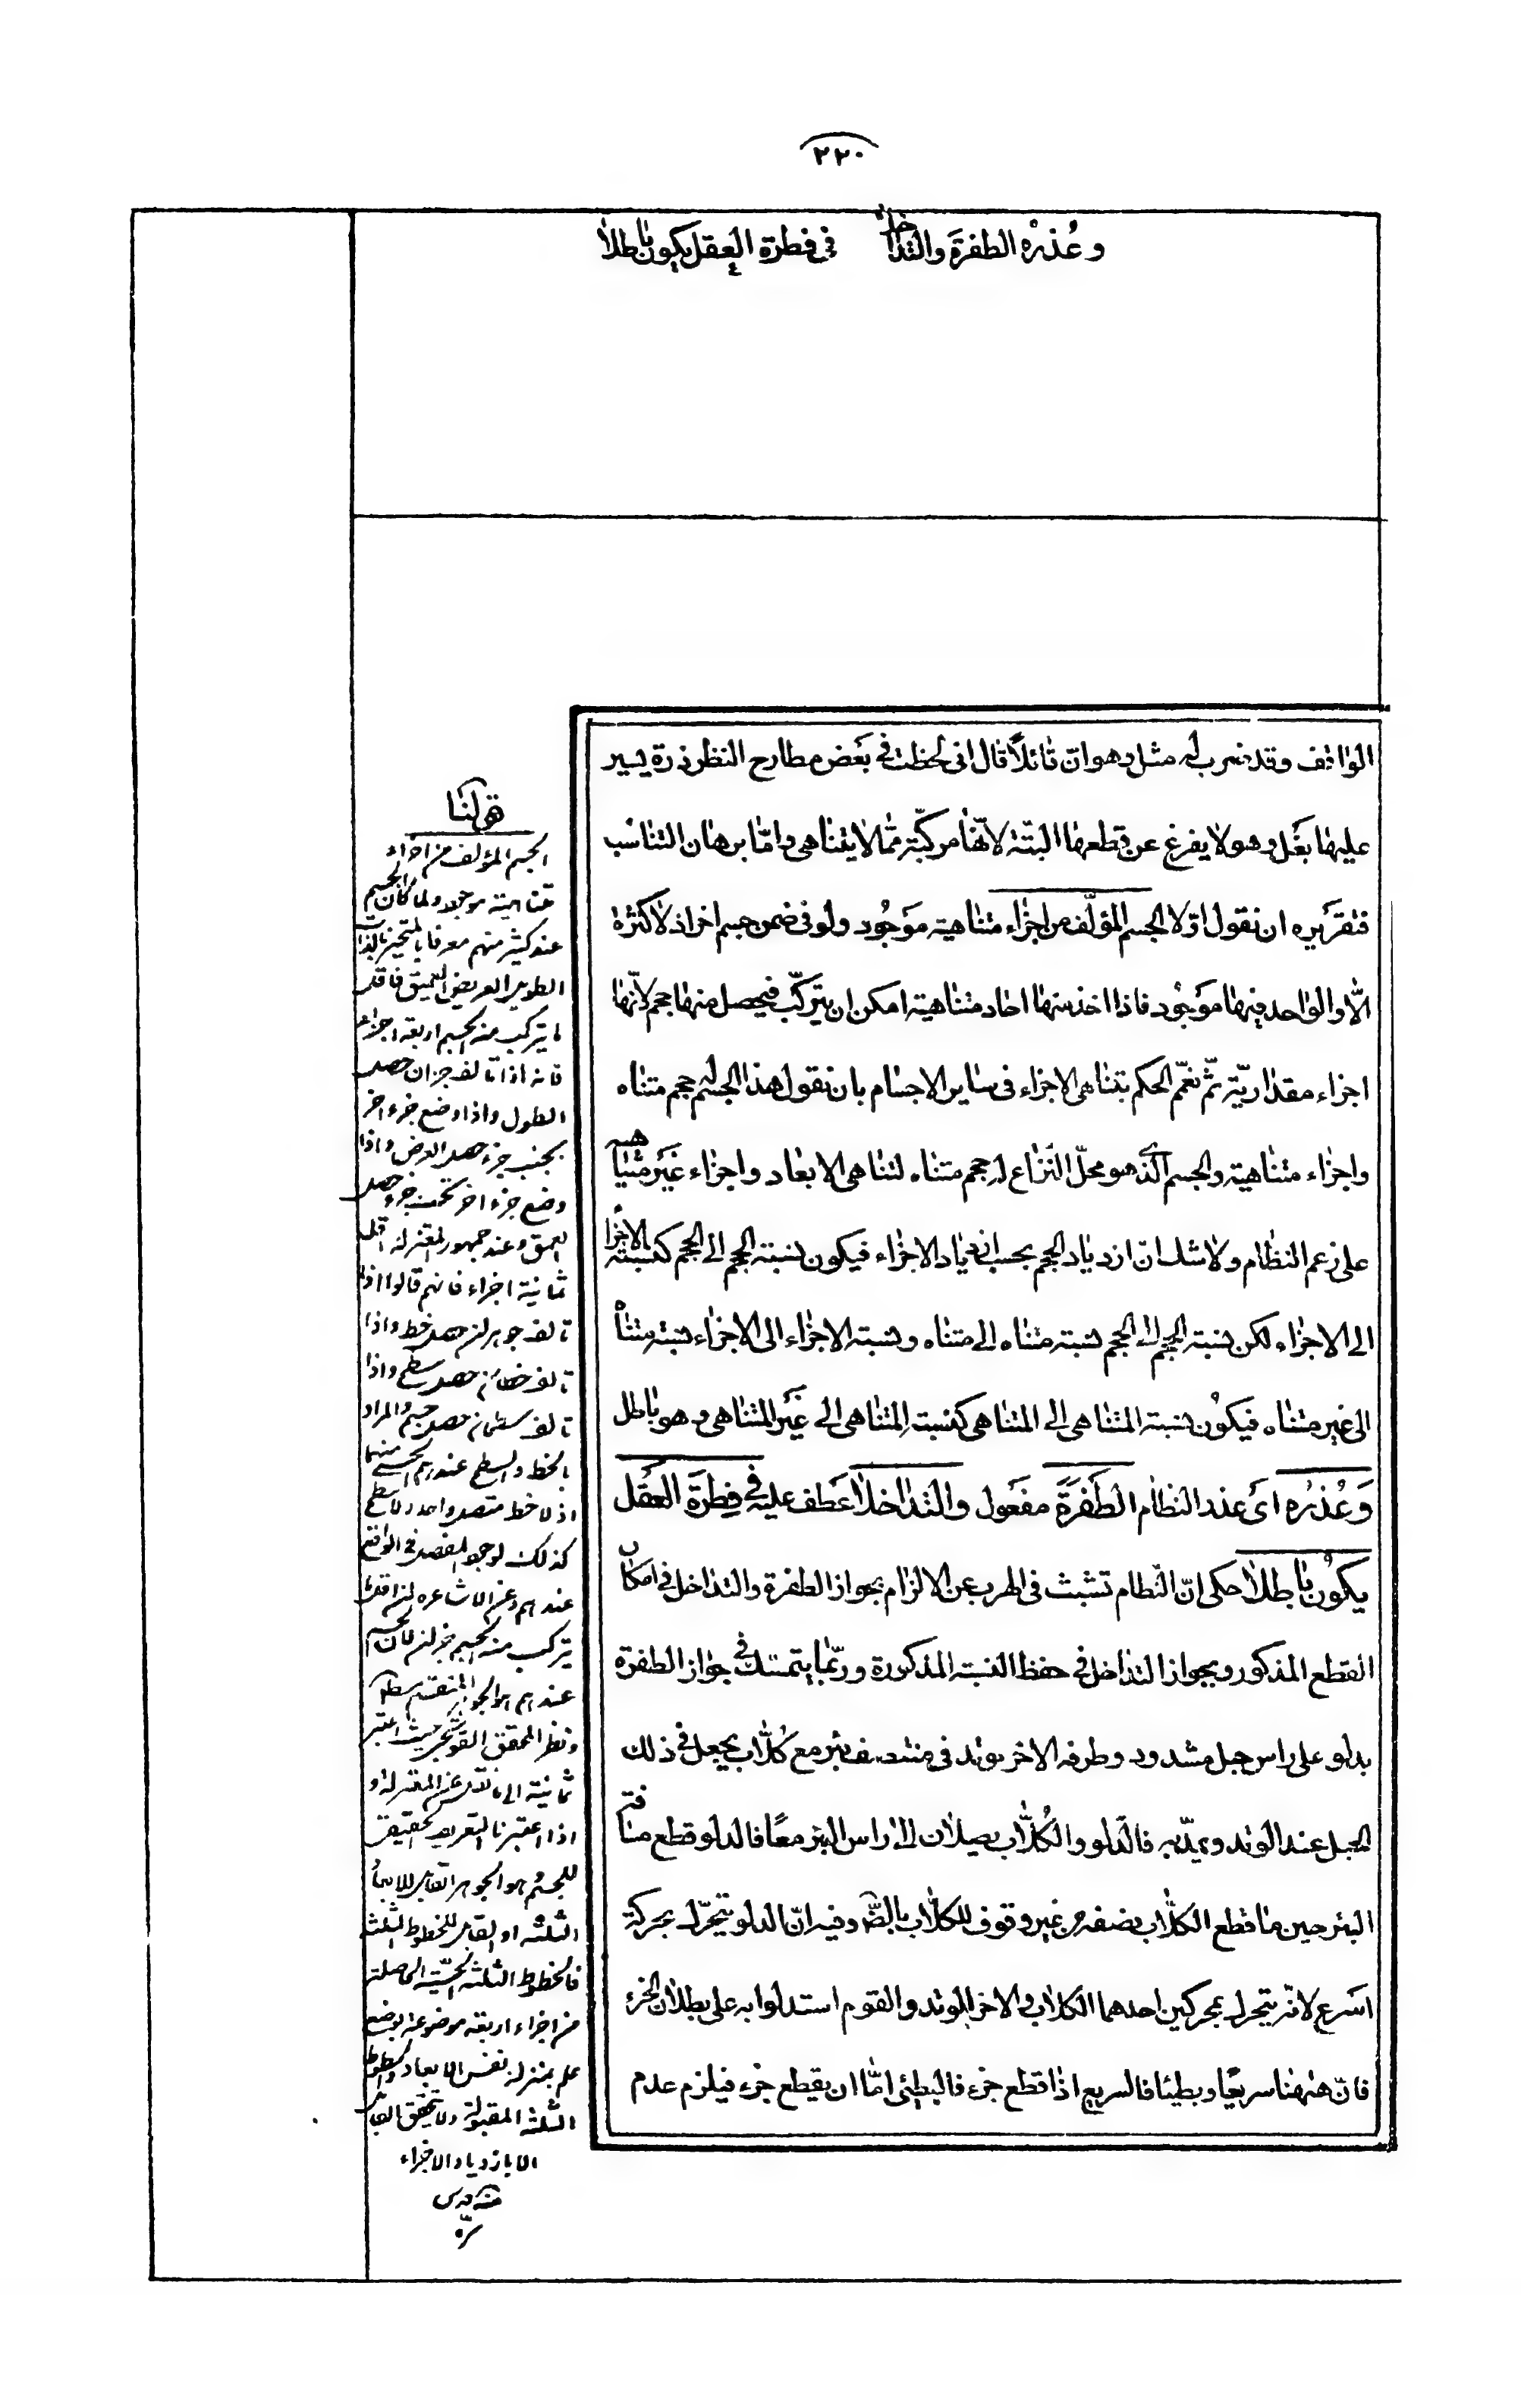 ٢٢٠
وعُذرُه الطفرةَ والتداخلا في فطرة العقل يكون باطلا
الواقف وقد ضرب له مثل وهو ان قائلاً قال انی لحظت فی بعض مطارح النظر ذرة یسیر
علیها بغل وهو لا یفرغ عن قطعها البتّة لانّها مركبّة ممّا لا یتناهی وامّا برهان التناسب
فتقریره ان نقول اوّلا الجسم المؤلّف من اجزاء متناهیة موجُود ولو فی ضمن جسم اخر اذ لا كثرة
الّا والواحد فیها موجُود فاذا اخذ منها احاد متناهیة امكن ان یتركّب فیحصل منها حجم لانّها
اجزاء مقداریّة ثمّ نعمّم الحكم بتناهی الاجزاء فی سایر الاجسام بان نقول هذا الجسم له حجم متناه
واجزاء متناهیة والجسم الّذی هو محلّ النّزاع له حجم متناه لتناهی الابعاد واجزاء غیر متناهیة
علی زعم النظّام ولا شك انّ ازدیاد الحجم بحسب ازدیاد الاجزاء فیكون نسبة الحجم الی الحجم كنسبة الاجزا
الی الاجزاء لكن نسبة الحجم الی الحجم نسبة متناه الی متناه ونسبة الاجزاء الی الاجزاء نسبة متناه
الی غیر متناه فیكون نسبة المتناهی الی المتناهی كنسبة المتناهی الی غیر المتناهی وهو باطل
وَعُذرُه ای عند النظام الطَفرَةَ مفعول والتداخلا عطف علیه فی فِطرَة العقل
یكون باطلا حكی انّ النّظام تشبث فی الهرب عن الالزام بجواز الطفرة والتداخل فی امكان
القطع المذكور وبجواز التداخل فی حفظ النسبة المذكورة وربّما یتمسّك فی جواز الطفرة
بدلو علی راس حبل مشدود وطرفه الاخر بوتد فی منتصف بئر مع كُلّاب یجعل فی ذلك
الحبل عند الوتد ویمدّ به فالدّلو والكُلّاب یصلان الی راس البئر معًا فالدلو قطع مسافة
البئر حین ما قطع الكلّاب نصفه من غیر وقوف للكلّاب بالضّ وفیه انّ الدلو یتحرّك بحركة
اسرع لانّه یتحرك بحركتین احدهما للكلاب والاخر للوتد والقوم استدلوا به علی بطلان الجزء
فانّ هٰهنا سریعًا وبطیئا فالسریع اذا قطع جزء فالبطیئ امّا ان یقطع جزء فیلزم عدم
قولنا
الجسم المؤلف من اجزاء
متناهیة موجود ولما كان الجسم
عند كثیر منهم معرفا بالمتحیز بالذات
الطویل العریض العمیق فاقل
ما یتركب منه الجسم اربعة اجزاء
فانه اذا تالف جزان حصل
الطول واذا وضع جزء اخر
بجنب جزء حصل العرض واذا
وضع جزء اخر تحت جزء حصل
العمق وعند جمهور المعتزلة اقله
ثمانیة اجزاء فانهم قالوا اذا
تالف جوهران حصل خط واذا
تالف خطان حصل سطح واذا
تالف سطحان حصل جسم والمراد
بالخط والسطح عندهم الحسی منهما
اذ لا خط متصل واحد ولا سطح
كذلك لوجود المفصل فی الواقع
عندهم وعن الاشاعرة ان اقل ما
یتركب منه الجسم جزان لان الجسم
عندهم هو الجوهر المنقسم
ونظر المحقق القوشجی حیث اعتبر
ثمانیة الی ما نقل عن المعتزلة و
اذا اعتبرنا التعریف الحقیقی
للجسم وهو الجوهر القابل للابعاد
الثلثة او القابل للخطوط الثلثة
فالخطوط الثلثة الحسیّة الحاصلة
من اجزاء اربعة موضوعة بوضع
بمنزلة نفس الابعاد والخطوط
الثلثة المقبولة ولا یتحقق القابل
الا بازدیاد الاجزاء
منه قدس
سرّه